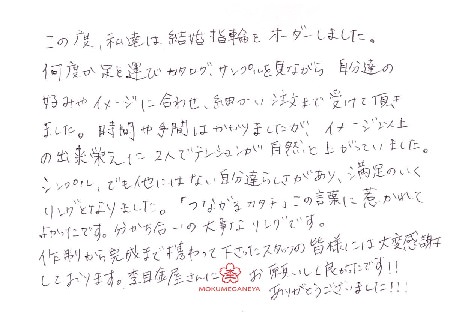 この度、私達は結婚指輪をオーダーしました。
何度か足を運びカタログ、サンプルを見ながら自分達の
好みやイメージに合わせ、細かい注文まで受けて頂き
ました。時間や手間はかかりましたが、イメージ以上
の出来栄えに2人でテンションが自然と上がっていました。
シンプル、でも他にはない自分達らしさがあり、満足のいく
リングとなりました。「つながるカタチ」この言葉に惹かれて
よかったです。分かち合いの大事なリングです。
作制から完成まで携わって下さったスタッフの皆様には大変感謝
しております。杢目金屋さんにお願いして良かったです!!
MOKUMEGANEYA
ありがとうございました!!!